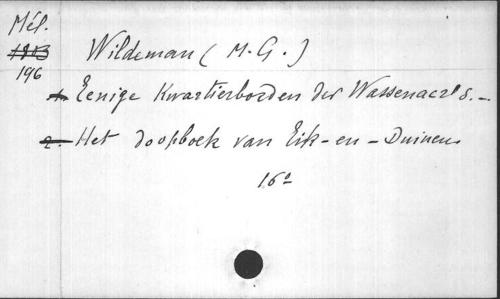 Mél.
1813
196
Wildeman (M. G.)
1. Eenige Kwartierborden der Wassenaer's. -
2. Het doopboek van Eik-en-Duinen
16º